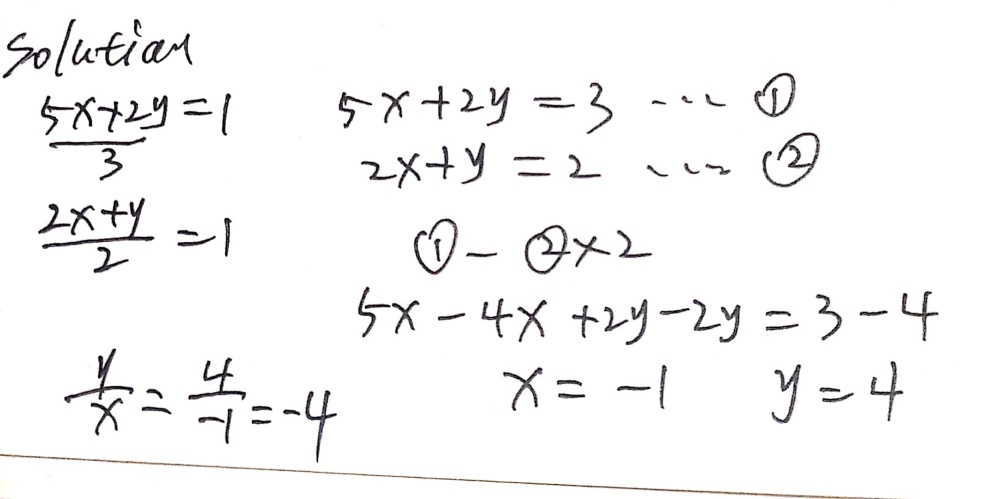 Solution
5x+2y/3 = 1
2x+y/2 = 1
5x+2y = 3 --- ①
2x+y = 2 --- ②
① - ②×2
5x - 4x + 2y - 2y = 3 - 4
x = -1   y = 4
y/x = 4/-1 = -4